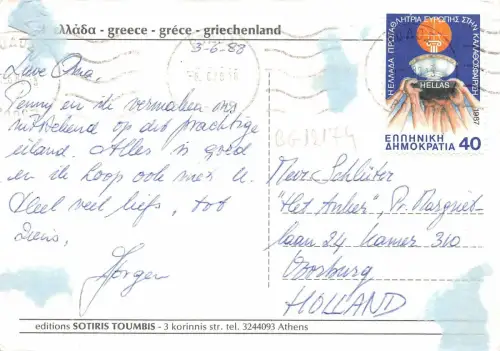 ελλάδα - greece - gréce - griechenland
3-6-88
Lieve Oma,
Penny en ik vermaken ons
uitstekend op dit prachtige
eiland. Alles is goed
en ik hoop ook met U.
Heel veel liefs, tot
ziens,
Jörgen
Η ΕΛΛΑΔΑ ΠΡΩΤΑΘΛΗΤΡΙΑ ΕΥΡΩΠΗΣ ΣΤΗΝ ΚΑΛΑΘΟΣΦΑΙΡΙΣΗ
HELLAS
1987
ΕΛΛΗΝΙΚΗ
ΔΗΜΟΚΡΑΤΙΑ 40
BG18174
Mevr. Schlüter
"Het Anker", Pr. Margriet
laan 24 kamer 310
Voorburg
HOLLAND
editions SOTIRIS TOUMBIS - 3 korinnis str. tel. 3244093 Athens